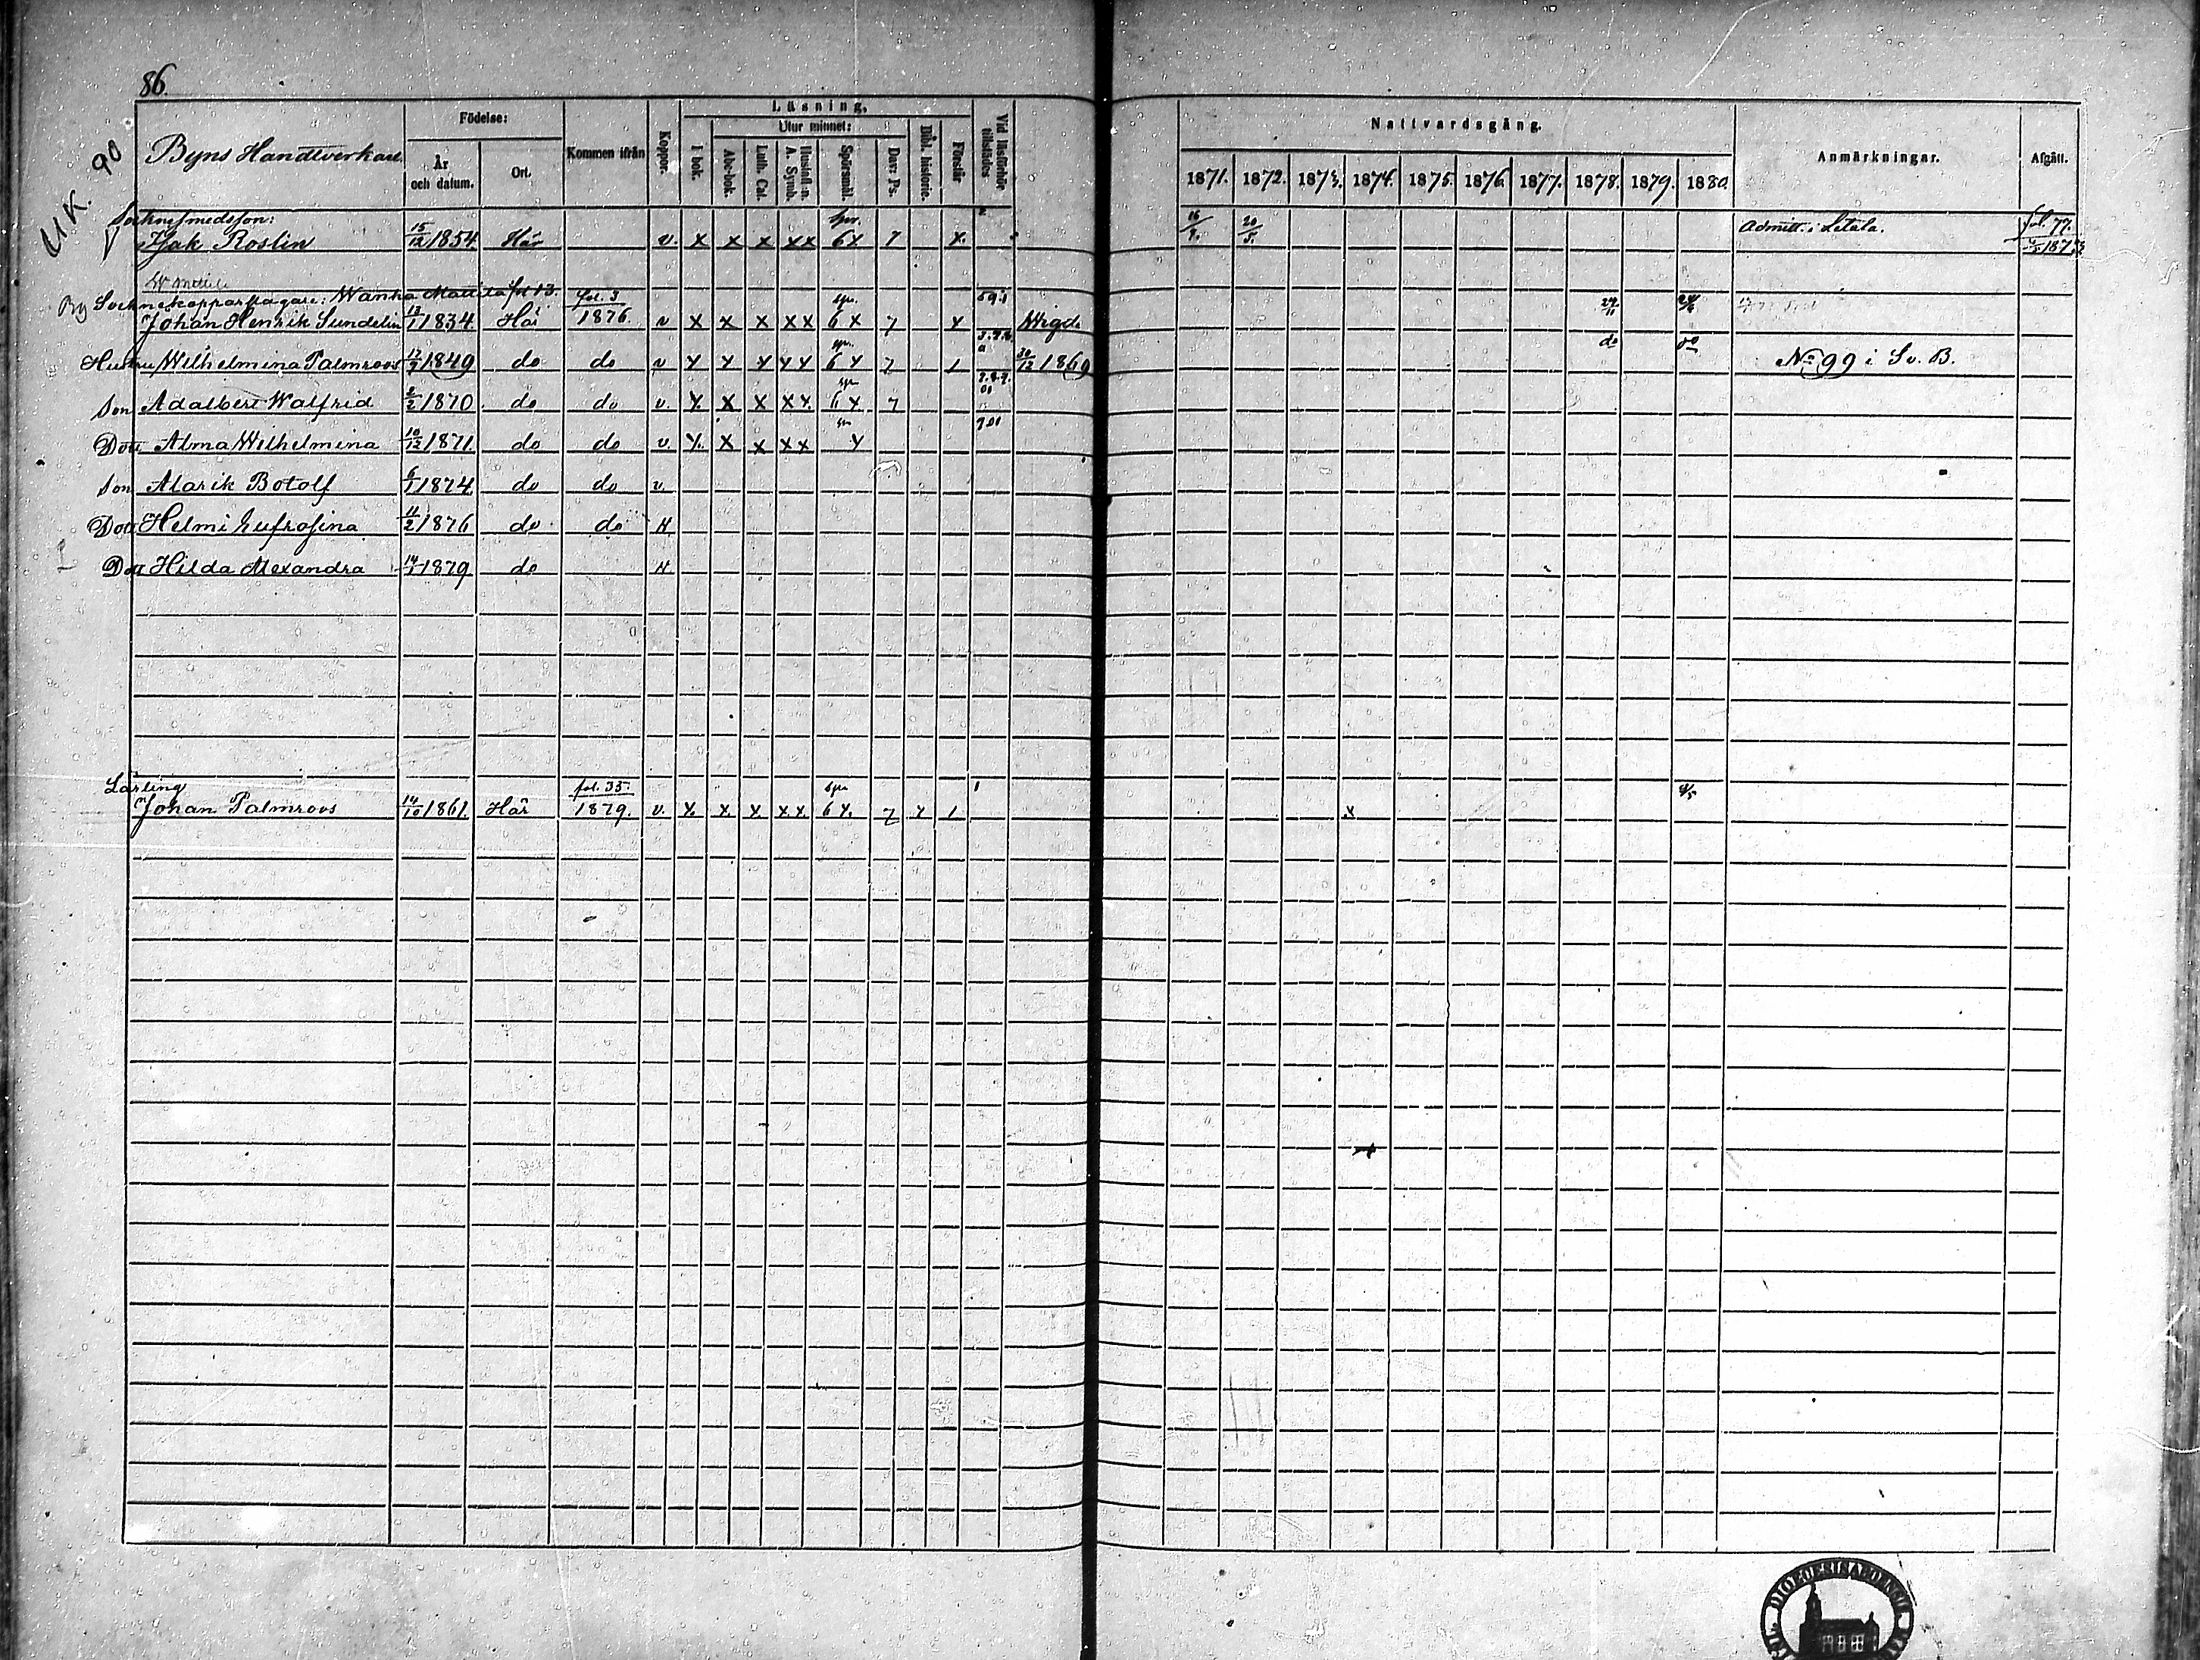 86.
U.K. 90
Byns Handtverkare
Födelse:
År och datum.
Ort.
Kommen ifrån
Koppor.
Läsning,
I bok.
Utur minnet:
Abc-bok.
Luth. Cat.
Hustafl. n. A. Symb.
Spörsmål.
Dav: Ps.
Bibl. historie.
Förstår
Vid läsförhör tillstädes
Nattvardsgång.
1871. 1872. 1873. 1874. 1875. 1876. 1877. 1878. 1879. 1880.
Anmärkningar.
Afgått.
Socknesmedsson:
Isak Roslin 15/12 1854 Här v. x x x xx 6x 7 x. 16/9. 20/5. Admitt. i Letala. fol. 77.
Socknekopparslagare: Wanha Mattila fol 13. fol. 3
Johan Henrik Sundelin 13/1 1834 Här 1876. v x x x xx 6 x 7 x Wigde
Hustru Wilhelmina Palmroos 17/7 1849 do do v x x x xx 6 x 7 1 30/12 1869 do do No 99 i Sv. B.
Son Adalbert Walfrid 2/2 1870 do do v. x x x xx 6 x 7
Dotr Alma Wilhelmina 10/12 1871. do do v. x x x xx x
Son Alarik Botolf 6/1 1874. do do v.
Dotr Helmi Eufrosina 11/2 1876 do do H
Dotr Hilda Alexandra 14/1 1879 do H
Lärling fol. 35.
Johan Palmroos 14/10 1861. Här 1879. v. x. x. x. x.x. 6 x. 7 x 1 x
DIOECESIS ABOENSIS